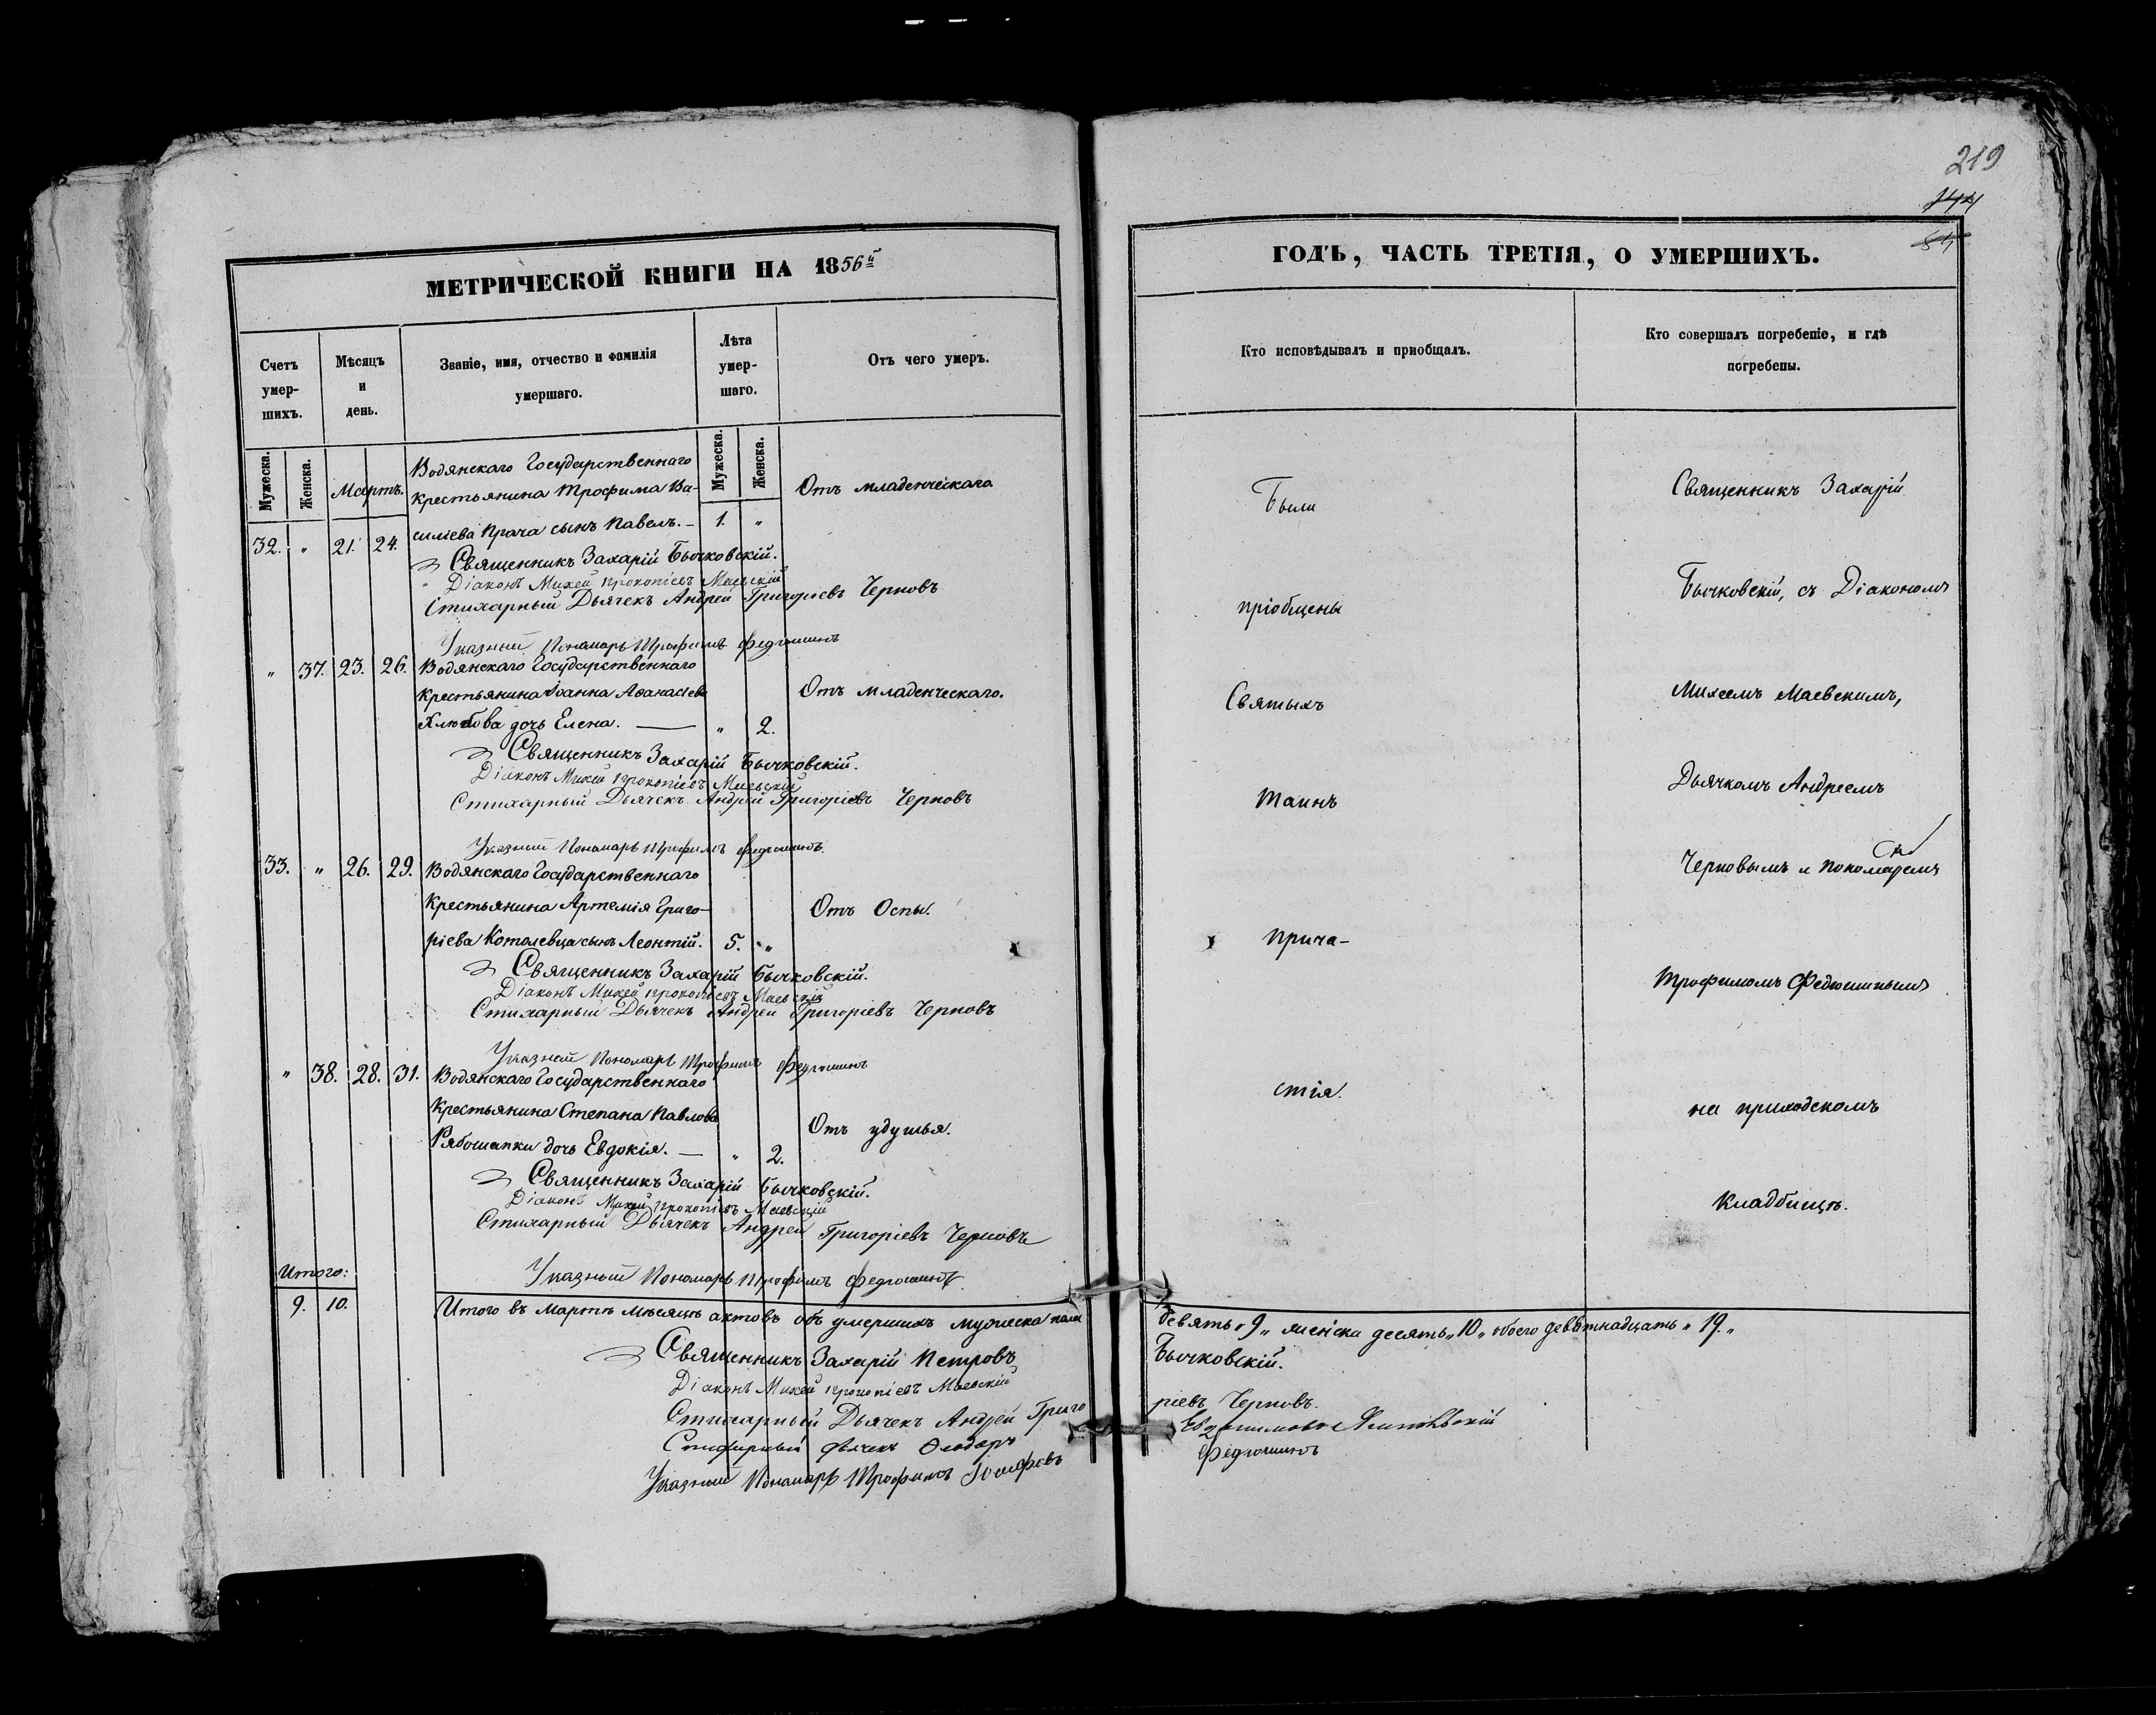 МЕТРИЧЕСКОЙ КНИГИ НА 1856й
Счетъ умер-шихъ.
Мѣсяцъ и день.
Званіе, имя, отчество и фамилія умершаго.
Лѣта умер-шаго.
Отъ чего умеръ.
Мужеска. Женска.
Мартъ.
Мужеска. Женска.
Водянскаго Государственнаго
Крестьянина Трофима Ва- Отъ младенческаго
32. „ 21. 24. силіева Прача сынъ Павелъ. – 1. „
Священникъ Захарій Бычковскій.
Діаконъ Михей Прокопіевъ Маевскій
Стихарный Дьячекъ Андрей Григоріевъ Черновъ
Указный Пономарь Трофимъ Федюшинъ
„ 37. 23. 26. Водянскаго Государственнаго
Крестьянина Іоанна Аѳанасіева Отъ младенческаго.
дочь Елена. — „ 2.
Священникъ Захарій Бычковскій.
Діаконъ Михей Прокопіевъ Маевскій
Стихарный Дьячекъ Андрей Григоріевъ Черновъ
Указный Пономарь Трофимъ Федюшинъ.
33. „ 26. 29. Водянскаго Государственнаго
Крестьянина Артемія Григо- Отъ Оспы.
ріева Котлевца сынъ Леонтій. 5. „
Священникъ Захарій Бычковскій.
Діаконъ Михей Прокопіевъ Маевскій
Стихарный Дьячекъ Андрей Григоріевъ Черновъ
Указный Пономарь Трофимъ Федюшинъ
„ 38. 28. 31. Водянскаго Государственнаго
Крестьянина Степана Павлова Отъ удушья.
Рябошапки дочь Евдокія. — „ 2.
Священникъ Захарій Бычковскій.
Діаконъ Михей Прокопіевъ Маевскій
Стихарный Дьячекъ Андрей Григоріевъ Черновъ
Указный Пономарь Трофимъ Федюшинъ
Итого:
9. 10.
Итого въ Мартѣ мѣсяцѣ актовъ объ умершихъ мужеска пола
Священникъ Захарій Петровъ
Діаконъ Михей Прокопіевъ Маевскій
Стихарный Дьячекъ Андрей Григо
Стихарный Дьячекъ Ѳеодоръ
Указный Пономарь Трофимъ Іосифовъ
219
144
84
ГОДЪ, ЧАСТЬ ТРЕТІЯ, О УМЕРШИХЪ.
Кто исповѣдывалъ и пріобщалъ.
Кто совершалъ погребеніе, и гдѣ погребены.
Были
пріобщены
Святыхъ
Таинъ
Прича-
стія.
Священникъ Захарій
Бычковскій, съ Діакономъ
Михеемъ Маевскимъ,
Дьячкомъ Андреемъ
Черновымъ и Пономаремъ
Трофимомъ Федюшинымъ
на приходскомъ
Кладбищѣ.
девять „9„ женска десять „10„ обоего девятнадцать „19.„
Бычковскій.
ріевъ Черновъ.
Федюшинъ